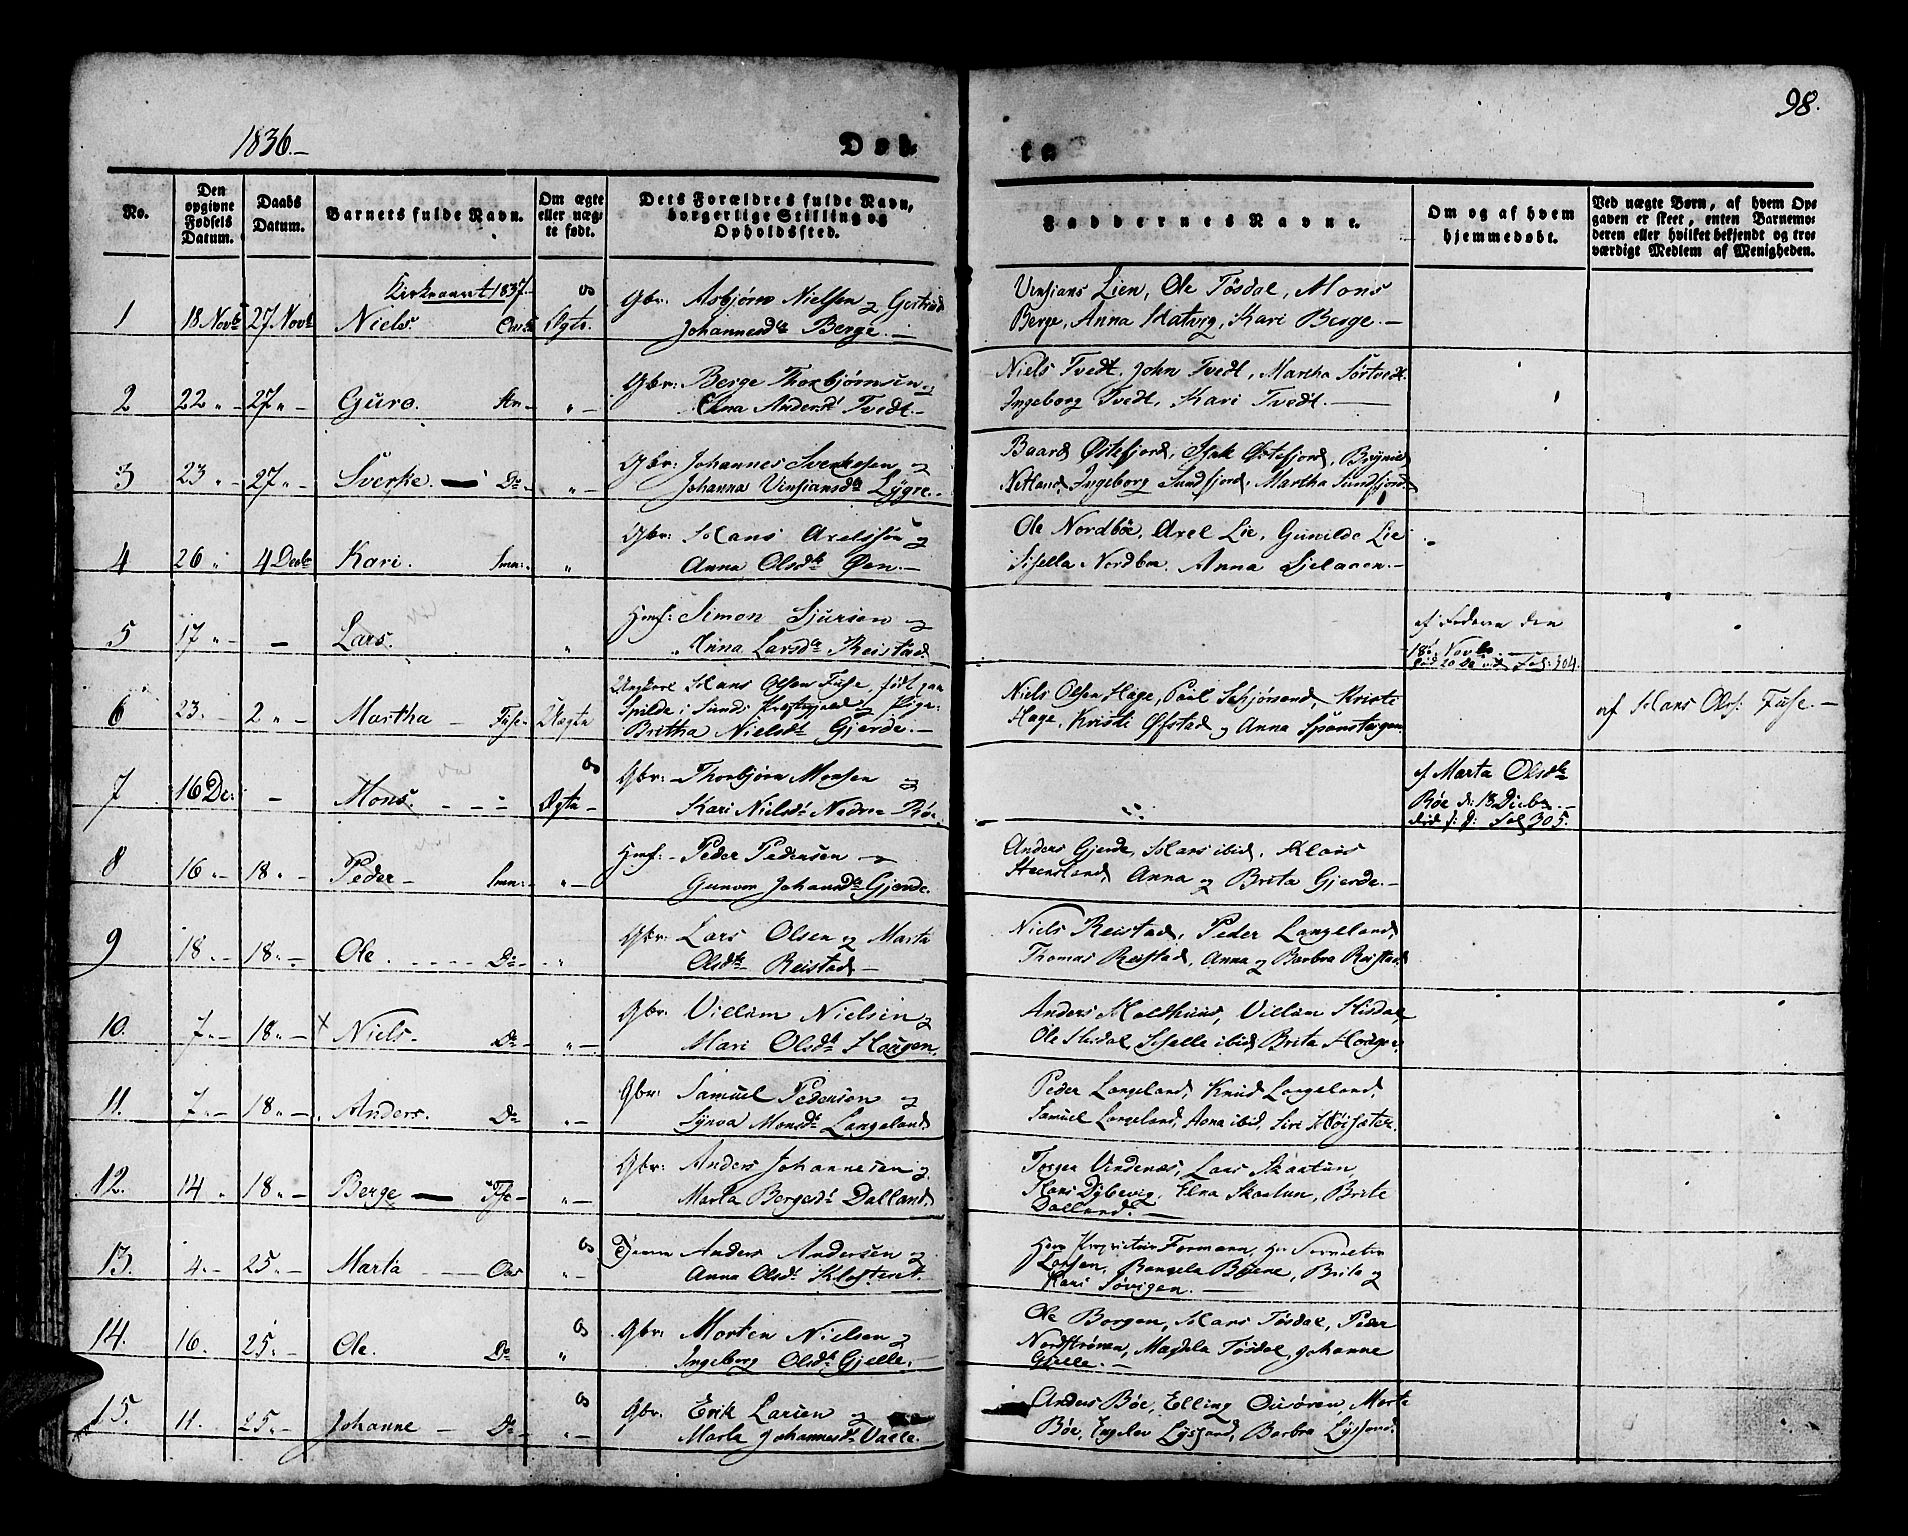 98.
1836.-
Døb
te
No.
Den opgivne Fødsels Datum.
Daabs Datum.
Barnets fulde Navn.
Om ægte eller uægte født.
Dets Forældres fulde Navn, borgerlige Stilling og Opholdssted.
Faddernes Navne.
Om og af hvem hjemmedøbt.
Ved uægte Børn, af hvem Opgaven er skeet, enten Barnemoderen eller hvilket bekjendt og troværdigt Medlem af Menigheden.
Kirkeaaret 1837
1 18 Novb 27 Novb Niels. Ægte. Gbr: Asbjørn Nielsen og Gertrud
Johannesdt Berge.- Berge, Anna Hatvig, Kari Berge.-
Lien, Ole Tøsdal, Mons
2 22 „- 27 „- Guro. „- Gbr: Berge Thorbjørnsen og
Andersd Tvedt.-
Niels Tvedt, John Tvedt, Martha Sørtvedt.
Ingeborg Tvedt, Kari Tvedt.-
3 23 „- 27 „- Sverke. Do- „- Gbr: Johannes Sverkesen og
Johanna Vinsiansdt Lygre.-
Baard Østefjord, Isak Østefjord, Brynild
Netland, Ingeborg Sundfjord, Martha Sundfjord.-
4 26 „ 4 Decbr Kari. „ Gbr: Hans Axelssøn og
Anna Olsdt Øen.-
Ole Nordbøe, Axel Lie, Gunilde Lie
Sisella Nordbøe, Anna
5 17 „- - Lars. „ Hmf: Simon Sjursen og
Anna Larsdt Reistad.
af Faderen den
18 Novb.
Fol: 304.
6 23.- 2 „- Martha - Fuse- Uægte Ungkarl Hans Olsen Fuse, født paa
Spilde i Sunds Præstegjeld og Pige
Britha Nielsdt Gjerde.-
Niels Olsen Hage, Paal Schjørsand, Kristi
Hage, Kristi Øfstad og Anna
af Hans Ols: Fuse.-
7 16 De: - Mons. Os Ægte- Gbr:- Thorbjørn Monsen og
Kari Nielsdt Nedre Bøe
af Marta Olsdt
Bøe d: 18 Decbr.-
død s: d: Fol 305.
8 16 „- 18 „- Peder- „- Hmf:- Peder Pedersen og
Gunvor Johannsdt Gjerde.
Anders Gjerde, Hans ibid, Hans
Anna og Brita Gjerde.-
9 18 „- 18.- Ole. Do- „ Gbr: Lars Olsen og Marta
Olsdt Reistad-
Niels Reistad, Peder Langeland,
Thomas Reistad, Anna og Barbra Reistad
10. 7 „- 18 „- x Niels- Do- „- Gbr. Villum Nielsen og
Mari Olsdt Hougen.
Anders Moldhuus, Villum Hisdal,
Ole Hisdal, Siselle ibid, Brita Hougen
11. 7 „- 18 „- Anders. Do „- Gbr: Samuel Pedersen og
Synva Monsdt Langeland
Peder Langeland, Knud Langeland,
Samuel Langeland, Anna ibid, Siri Røisæter.
12. 14 „ 18 „- Berge „- Gbr: Anders Johannesen og
Marta Bergesdt Dalland
Torger Vindenæs, Lars Skaatun,
Hans Dybevig, Elna Skaatun, Brite
Dalland.-
13. 4.- 25.- Marta Oos Os „- Anders Andersen og
Anna Olsdt Klosteret.
Formann,
Larsen, Brita og
Kari Søvigen.-
14. 16. 25.- Ole. Do Os „ Gbr: Morten Nielsen og
Ingeborg Olsdt Gjelle.-
Ole Borgen, Hans Tøsdal, Peder
Nordstrønen, Magdela Tøsdal, Johanne
Gjelle.-
15. 11. 25.- Johanne - Do- Os „- Gbr. Erik Larsen og
Marta Johannesdt Valle.
Anders Bøe, Elling Ousøren, Marta
Bøe, Lysfand, Barbra Lysfand.